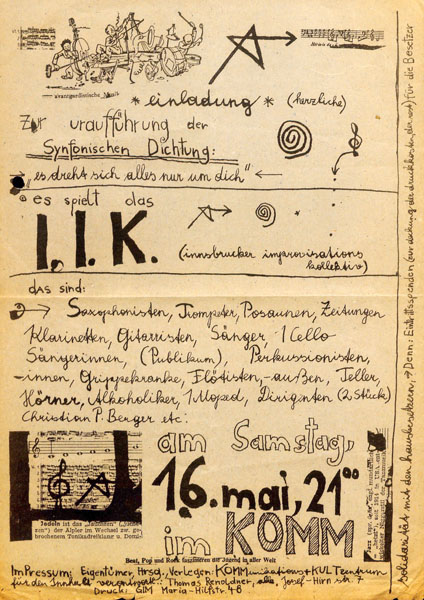 — avantgardistische Musik
* einladung * (herzliche)
Zur uraufführung der
Synfonischen Dichtung:
→ „es dreht sich alles nur um dich" ←
es spielt das
I.I.K. (innsbrucker improvisations
kollektiv)
das sind:
→ Saxophonisten, Trompeter, Posaunen, Zeitungen
Klarinetten, Gitarristen, Sänger, 1 Cello
Sängerinnen, (Publikum), Perkussionisten,
-innen, Grippekranke, Flötisten, -außen, Teller,
Hörner, Alkoholiker, 1 Moped, Dirigenten (2 Stück)
Christian P. Berger etc:
am Samstag,
16. mai, 21⁰⁰
im KOMM
Jodeln ist das „Jauchzen"
der Älpler im Wechsel zw. ge-
brochenem Tonikadreiklang u. Domi-
Beat, Pop und Rock faszinieren die Jugend in aller Welt
Impressum: Eigentümer, Hrsg, Verleger: KOMMunikations + KULTzentrum
für den Inhalt verantwortl.: Thomas Renoldner, alle, Josef-Hirn str. 7
Druck: GIM Maria-Hilfstr 48
solidarität mit den hausbesetzern, → Denn: Eintrittsspenden (zur deckung der druckkosten, der rest) für die Besetzer